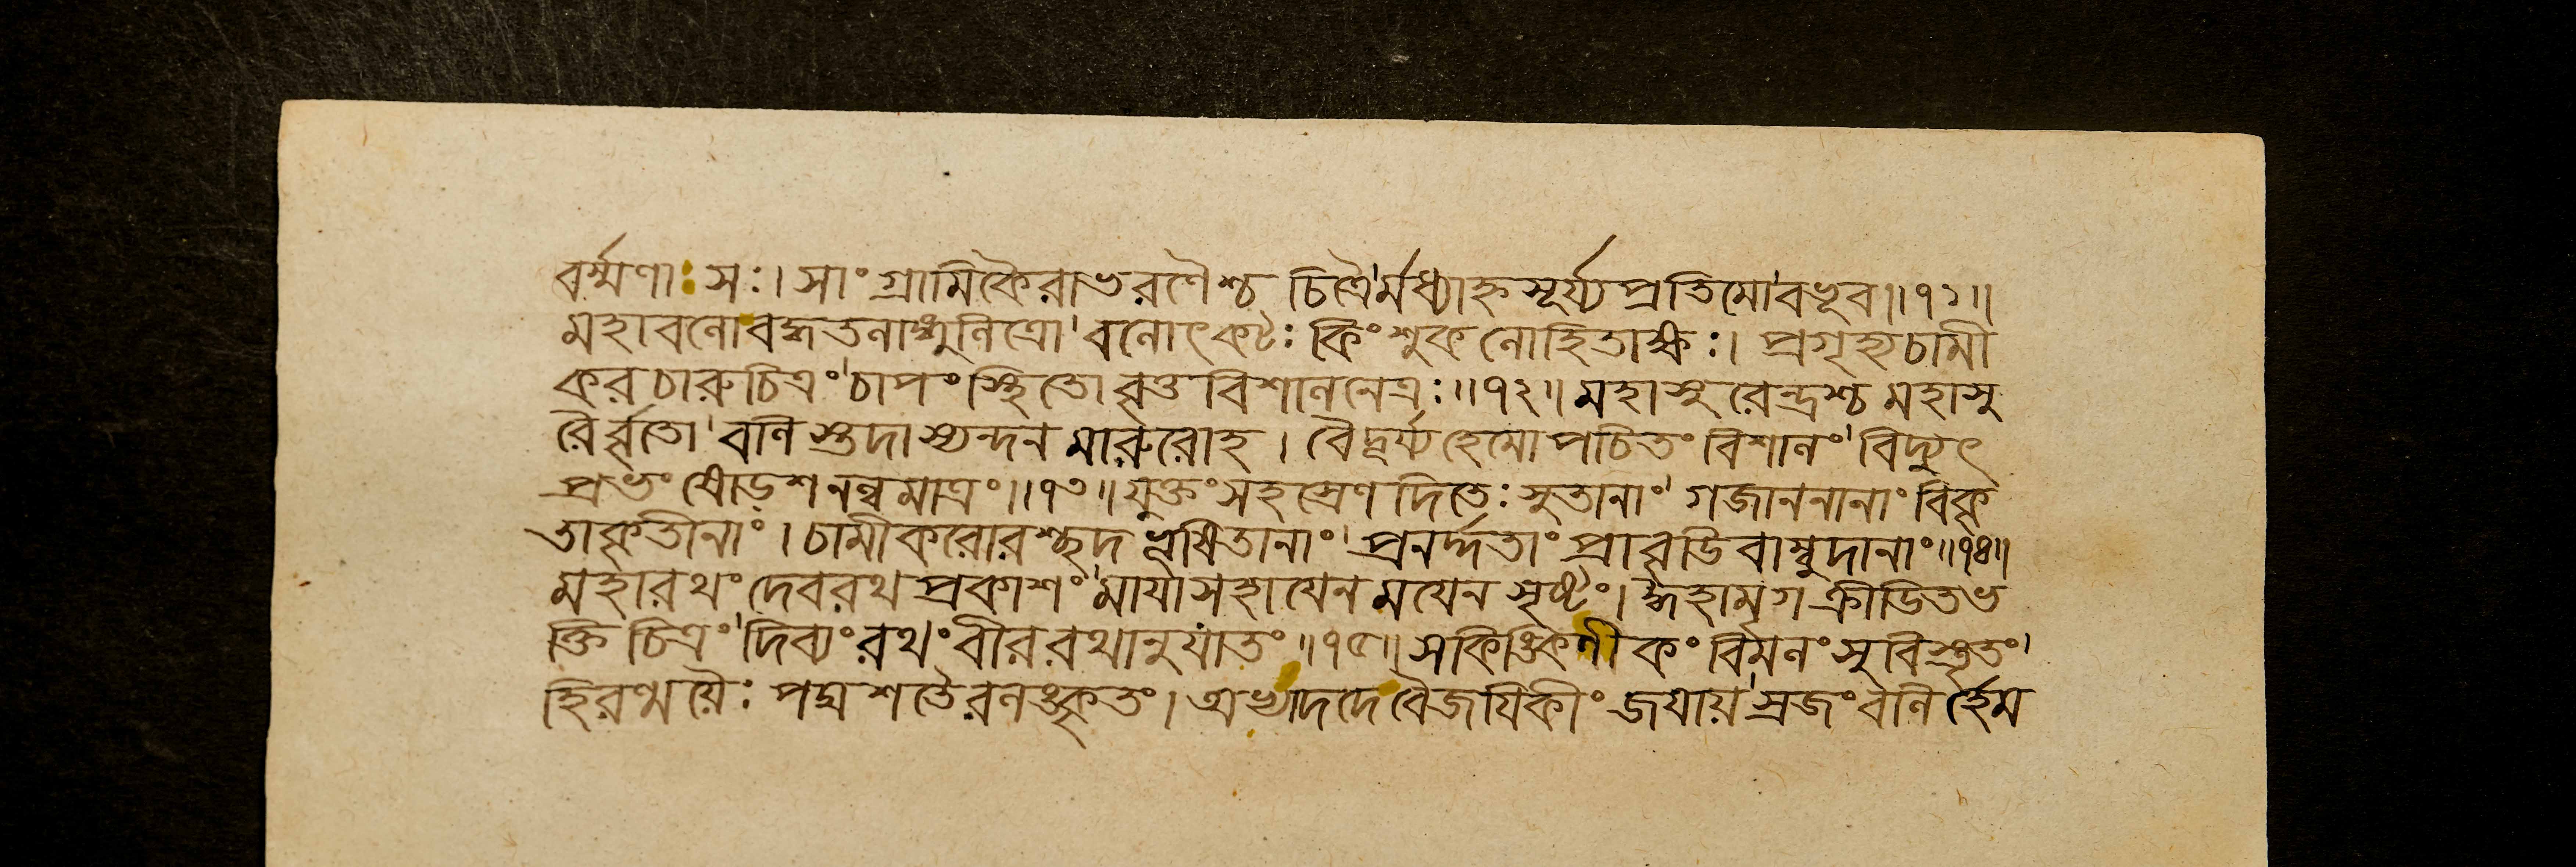 বর্ম্মণা সঃ। সাংগ্রামিকৈরাভরণৈশ্চ চিত্রৈর্মধ্যাহ্নসূর্য্যপ্রতিমোবভূব॥১১॥
মহাবলোবদ্ধতলাঙ্গুলিত্রো বলোৎকটঃ কিংশুকলোহিতাক্ষঃ। প্রগৃহ্যচামী
করচারুচিত্রং চাপংস্থিতো বৃত্তবিশালনেত্রঃ॥১২॥ মহাসুরেন্দ্রশ্চ মহাসু
রৈর্বৃতো বলিস্তদাস্যন্দনমারুরোহ। বৈদূর্য্যহেমোপচিতং বিশালং বিদ্যুৎ
প্রভং ষোড়শনল্বমাত্রং॥১৩॥ যুক্তং সহস্রেণ দিতেঃ সুতানাং গজাননানাং বিকৃ
তাকৃতীনাং। চামীকরোরশ্ছদভূষিতানাং প্রনর্দ্দতাং প্রাবৃডিবাম্বুদানাং॥১৪॥
মহারথং দেবরথপ্রকাশং মায়াসহায়েন ময়েন সৃষ্টং। ঈহামৃগক্রীডিতভ
ক্তিচিত্রং দিব্যং রথং বীররথানুযাতং॥১৫॥ সকিঙ্কিণীকং বিমলং সুবিস্তৃতং
হিরণ্ময়ৈঃ পদ্মশতৈরলঙ্কৃতং। অভ্যাদদে বৈজয়িকীং জয়ায় স্রজং বলির্হেম